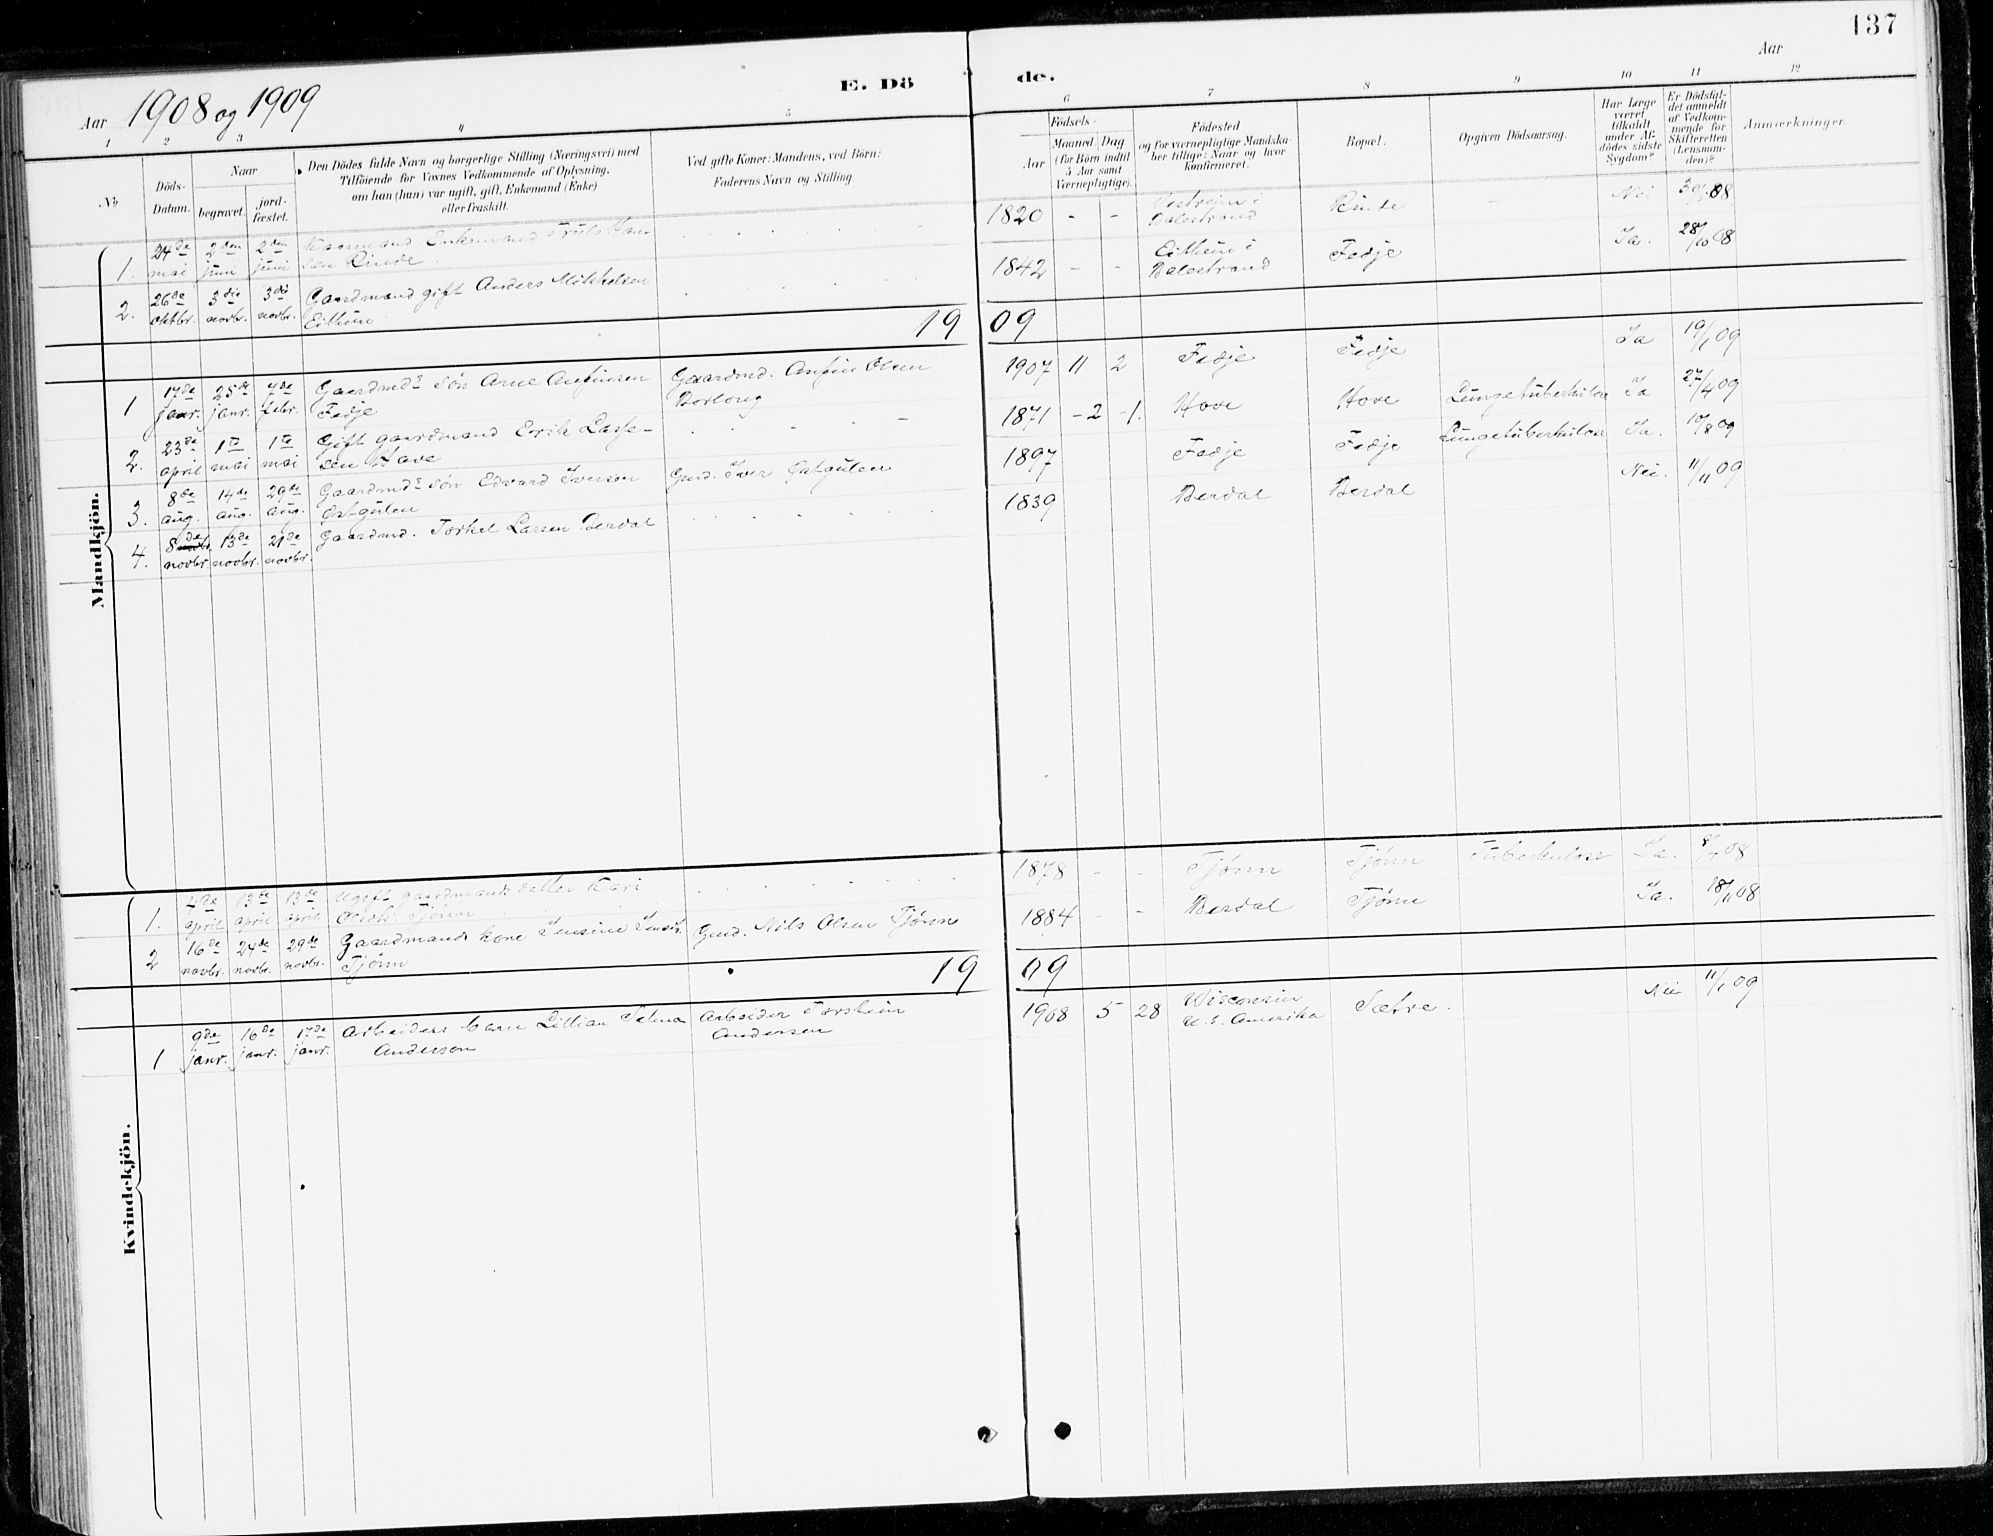 137
Aar 1908 og 1909
E. Dö
de.
Aar
1 2 3 4 5
6 7 8 9 10 11 12
No
Döds-
Datum.
Naar
begravet.
jord-
fæstet.
Den Dödes fulde Navn og borgerlige Stilling (Næringsvei) med
Tilföiende for Voxnes Vedkommende af Oplysning,
om han (hun) var ugift, gift, Enkemand (Enke)
eller fraskilt.
Ved gifte Koner: Mandens, ved Börn:
Faderens Navn og Stilling
Födsels-
Aar
Maaned. Dag
(for Börn indtil
5 Aar samt
Værnepligtige).
Födested
og for værnepligtige Mandska-
ber tillige: Naar og hvor
konfirmeret.
Bopæl.
Opgiven Dödsaarsag.
Har Læge
været
tilkaldt
under Af-
dödes sidste
Sygdom?
Er Dödsfal-
det anmeldt
af Vedkom-
mende for
Skifteretten
(Lensman-
den)?
Anmærkninger.
Mandkjön.
1. 24de mai 2den juni 2den juni Enkemand Truls Han-
sen Rinde. 1820 - - Balestrand Rinde - Nei 30/5 08
2. 26de oktbr. 3die novbr. 3die novbr. Gaardmand gift Anders Mikkelsen
Eithun 1842 - - Eithun i
Balestrand Fedje Ja. 28/10 08
1909
1 17de janr. 25de janr. 7de febr. Gaardmds søn Arne Anfinsen
Fedje Gaardmd. Anfin Olsen
1907 11 2 Fedje Fedje Ja 19/1 09
2. 23de april 1ste mai 1ste mai Gift gaardmand Erik Lasse-
sen Hove 1871 - 2 - 1. Hove Hove Lungetuberkulose Ja 27/4 09
3. 8de aug. 14de aug. 29de aug. Gaardmds søn Edvard Iversen
Østgulen Gmd. Iver Østgulen 1897 Fedje Fedje Lungetuberkulose Ja. 10/8 09
4. 8de novbr. 13de novbr. 21de novbr. Gaardmd. Torkel Larsen Berdal 1839 Berdal Berdal Nei. 11/11 09
Kvindekjön.
1. 4de april 13de april 13de april Ugift gaardmands datter Kari
Tjønn 1878 - - Tjønn Tjønn Tuberkulose Ja. 8/4 08
2 16de novbr. 24de novbr. 29de novbr. Gaardmands kone Jensine
Tjønn Gmd. Nils Olsen Tjønn 1884 - - Berdal Tjønn Ja. 18/11 08
1909
1 9de janr. 16de janr. 17de janr. Arbeiders barn Lillian Selma
Anderson Arbeider Torstein
Andersen 1908 5 28 Wisconsin
U.S. Amerika Sætre. Nei 11/1 09